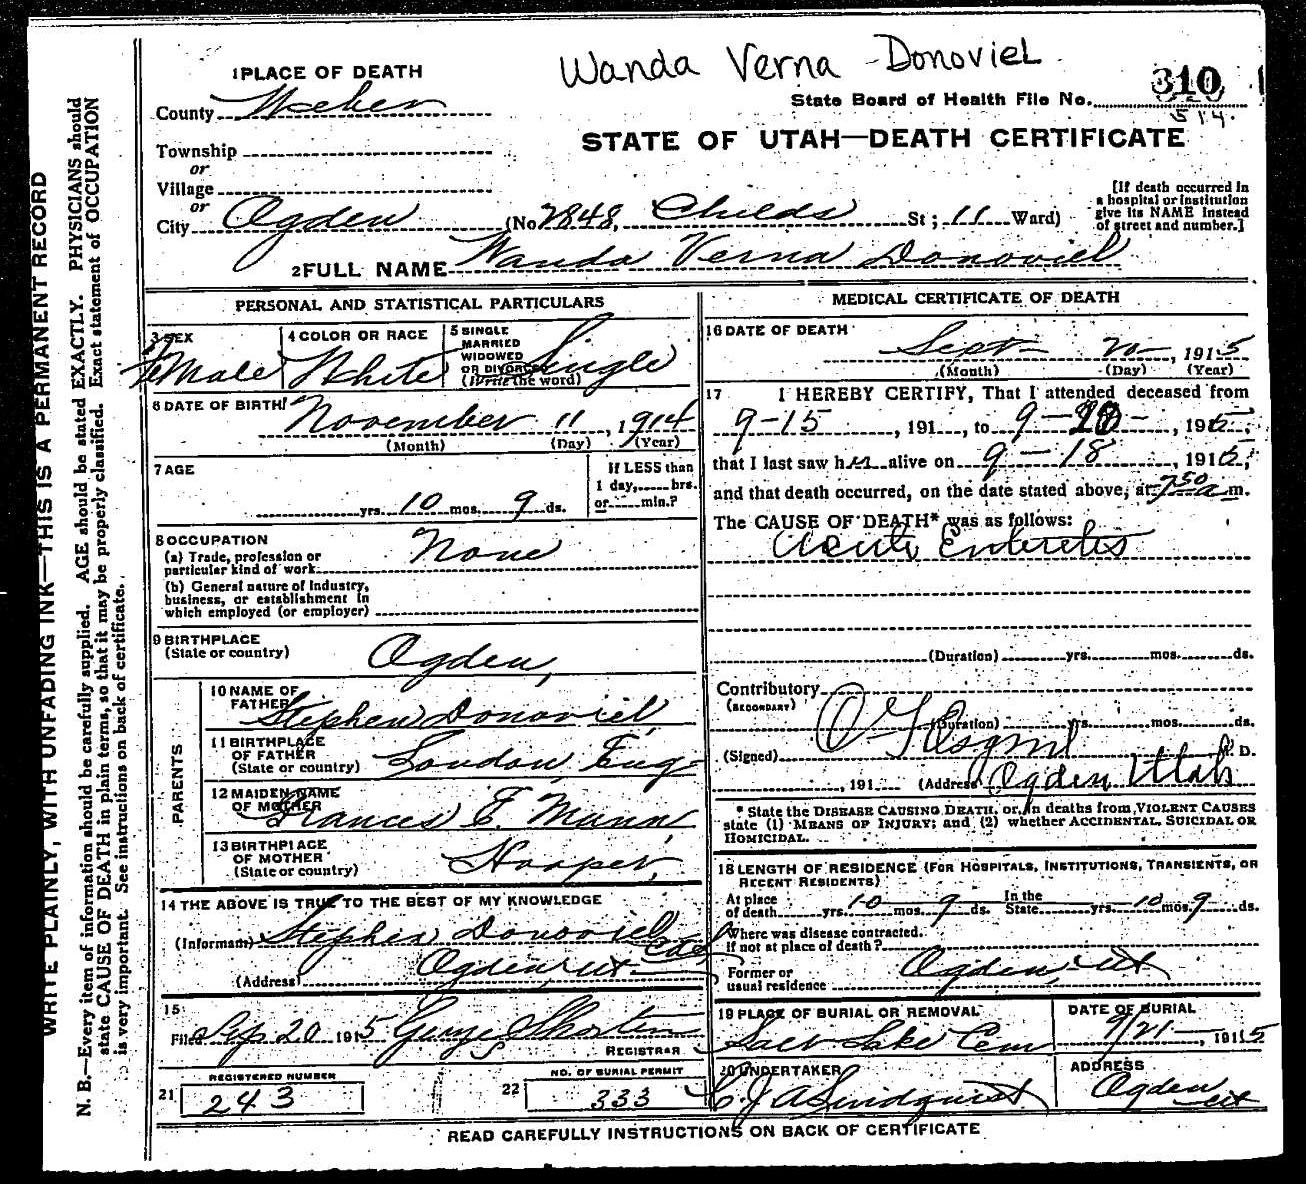 Wanda Verna Donoviel
1 PLACE OF DEATH
310
County Weber
State Board of Health File No.
514.
STATE OF UTAH—DEATH CERTIFICATE
Township
or
Village
or
City Ogden (No 2848, Childs St; 11 Ward)
[If death occurred in
a hospital or institution
give its NAME instead
of street and number.]
2 FULL NAME Wanda Verna Donoviel
PERSONAL AND STATISTICAL PARTICULARS
3 SEX
feMale
4 COLOR OR RACE
White
5 SINGLE
MARRIED
WIDOWED
OR DIVORCED
(Write the word)
Single
6 DATE OF BIRTH
November 11, 1914
(Month) (Day) (Year)
7 AGE
yrs. 10 mos. 9 ds.
If LESS than
1 day, hrs.
or min.?
8 OCCUPATION
(a) Trade, profession or
particular kind of work None
(b) General nature of industry,
business, or establishment in
which employed (or employer)
9 BIRTHPLACE
(State or country) Ogden,
PARENTS
10 NAME OF
FATHER Stephen Donoviel
11 BIRTHPLACE
OF FATHER
(State or country) London, Eng
12 MAIDEN NAME
OF MOTHER Frances E. Munn
13 BIRTHPLACE
OF MOTHER
(State or country) Hooper,
14 THE ABOVE IS TRUE TO THE BEST OF MY KNOWLEDGE
(Informant) Stephen Donoviel
(Address) Ogden Ut
15
Filed Sep 20 1915 George Shorten
REGISTRAR
21 REGISTERED NUMBER
243
22 NO. OF BURIAL PERMIT
333
MEDICAL CERTIFICATE OF DEATH
16 DATE OF DEATH
Sept 20, 1915
(Month) (Day) (Year)
17 I HEREBY CERTIFY, That I attended deceased from
9-15, 191, to 9-20-, 1915,
that I last saw her alive on 9-18, 1915,
and that death occurred, on the date stated above, at 7 50 a m.
The CAUSE OF DEATH* was as follows:
Acute Enteretis
(Duration) yrs. mos. ds.
Contributory
(SECONDARY)
(Duration) yrs. mos. ds.
(Signed) M. D.
, 191 (Address) Ogden Utah
* State the DISEASE CAUSING DEATH, or, in deaths from VIOLENT CAUSES
state (1) MEANS OF INJURY; and (2) whether ACCIDENTAL, SUICIDAL OR
HOMICIDAL.
18 LENGTH OF RESIDENCE (FOR HOSPITALS, INSTITUTIONS, TRANSIENTS, OR
RECENT RESIDENTS)
At place
of death yrs. 10 mos. 9 ds. In the
State yrs. 10 mos. 9 ds.
Where was disease contracted.
If not at place of death?
Former or
usual residence Ogden, Ut
19 PLACE OF BURIAL OR REMOVAL
Salt Lake Cem
DATE OF BURIAL
9/21, 1915
20 UNDERTAKER
C. J. A Lindquist
ADDRESS
Ogden Ut
READ CAREFULLY INSTRUCTIONS ON BACK OF CERTIFICATE
WRITE PLAINLY, WITH UNFADING INK—THIS IS A PERMANENT RECORD
N. B.—Every item of information should be carefully supplied. AGE should be stated EXACTLY. PHYSICIANS should
state CAUSE OF DEATH in plain terms, so that it may be properly classified. Exact statement of OCCUPATION
is very important. See instructions on back of certificate.